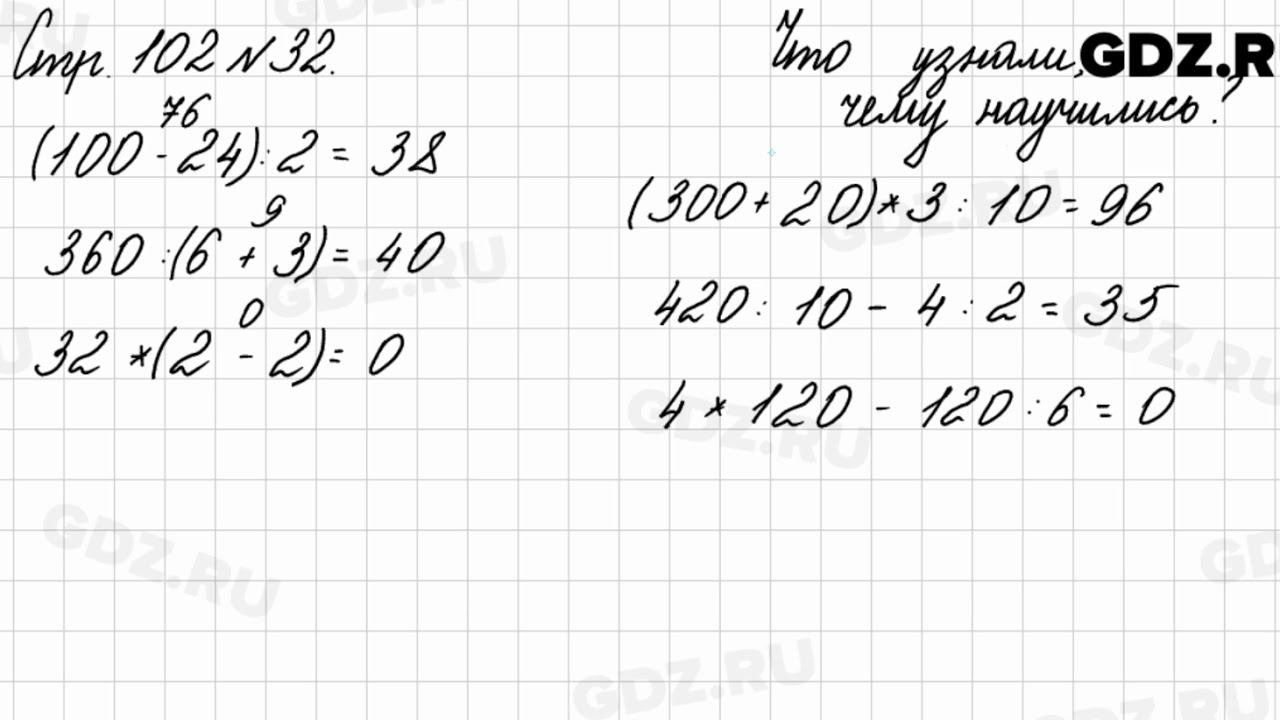 Стр. 102 №32.
76
(100 - 24) : 2 = 38
9
360 : (6 + 3) = 40
0
32 * (2 - 2) = 0
Что узнали, GDZ.R
чему научились?
(300 + 20) * 3 : 10 = 96
420 : 10 - 4 : 2 = 35
4 * 120 - 120 : 6 = 0
GDZ.RU
GDZ.RU
GDZ.RU
GDZ.RU
GDZ.RU
GDZ.RU
GDZ.RU